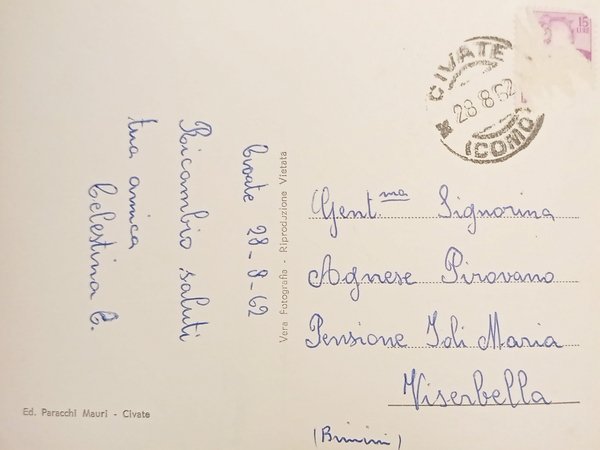 Civate 28-8-62
Ricambio saluti
tua amica
Celestina C.
Ed. Paracchi Mauri - Civate
Vera Fotografia - Riproduzione Vietata
15
LIRE
CIVATE
28 8 62
(COMO)
Gent.ma Signorina
Agnese Pirovano
Pensione Joli Maria
Viserbella
(Rimini)